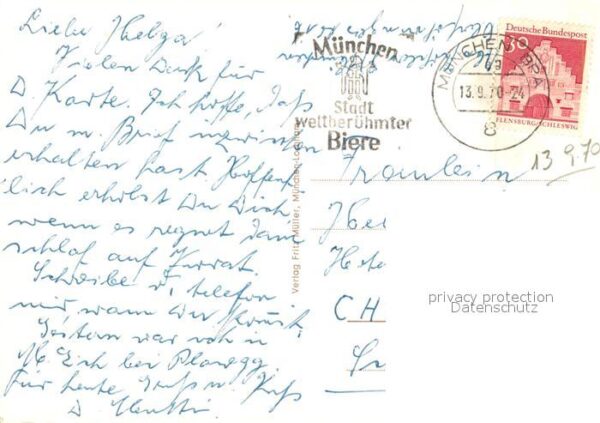 Liebe Helga!
Vielen Dank für
D. Karte. Ich hoffe, daß
Du m. Brief inzwischen
erhalten hast. Hoffent-
lich erholst Du Dich,
wenn es regnet, dann
schlaf auf Vorrat.
Schreibe o. telefon.
mir, wann Du kommst.
Gestern war ich in
bei Planegg.
Für heute Gruß u. Kuß
D. Mutti
München
Stadt
weltberühmter
Biere
MÜNCHEN BPA
13.9.70-24
8
Deutsche Bundespost
30
FLENSBURG/SCHLESWIG
13 9.70
Verlag Fritz Müller, München
Fräulein
CH
privacy protection
Datenschutz